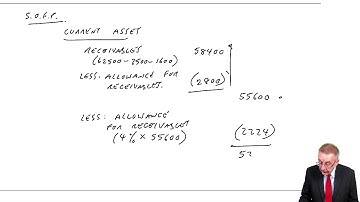 S.O.F.P.
CURRENT ASSET
RECEIVABLES 58400
(62500-2500-1600)
LESS: ALLOWANCE FOR
RECEIVABLES. (2800)
55600
LESS: ALLOWANCE
FOR RECEIVABLES
(4% × 55600) (2224)
53